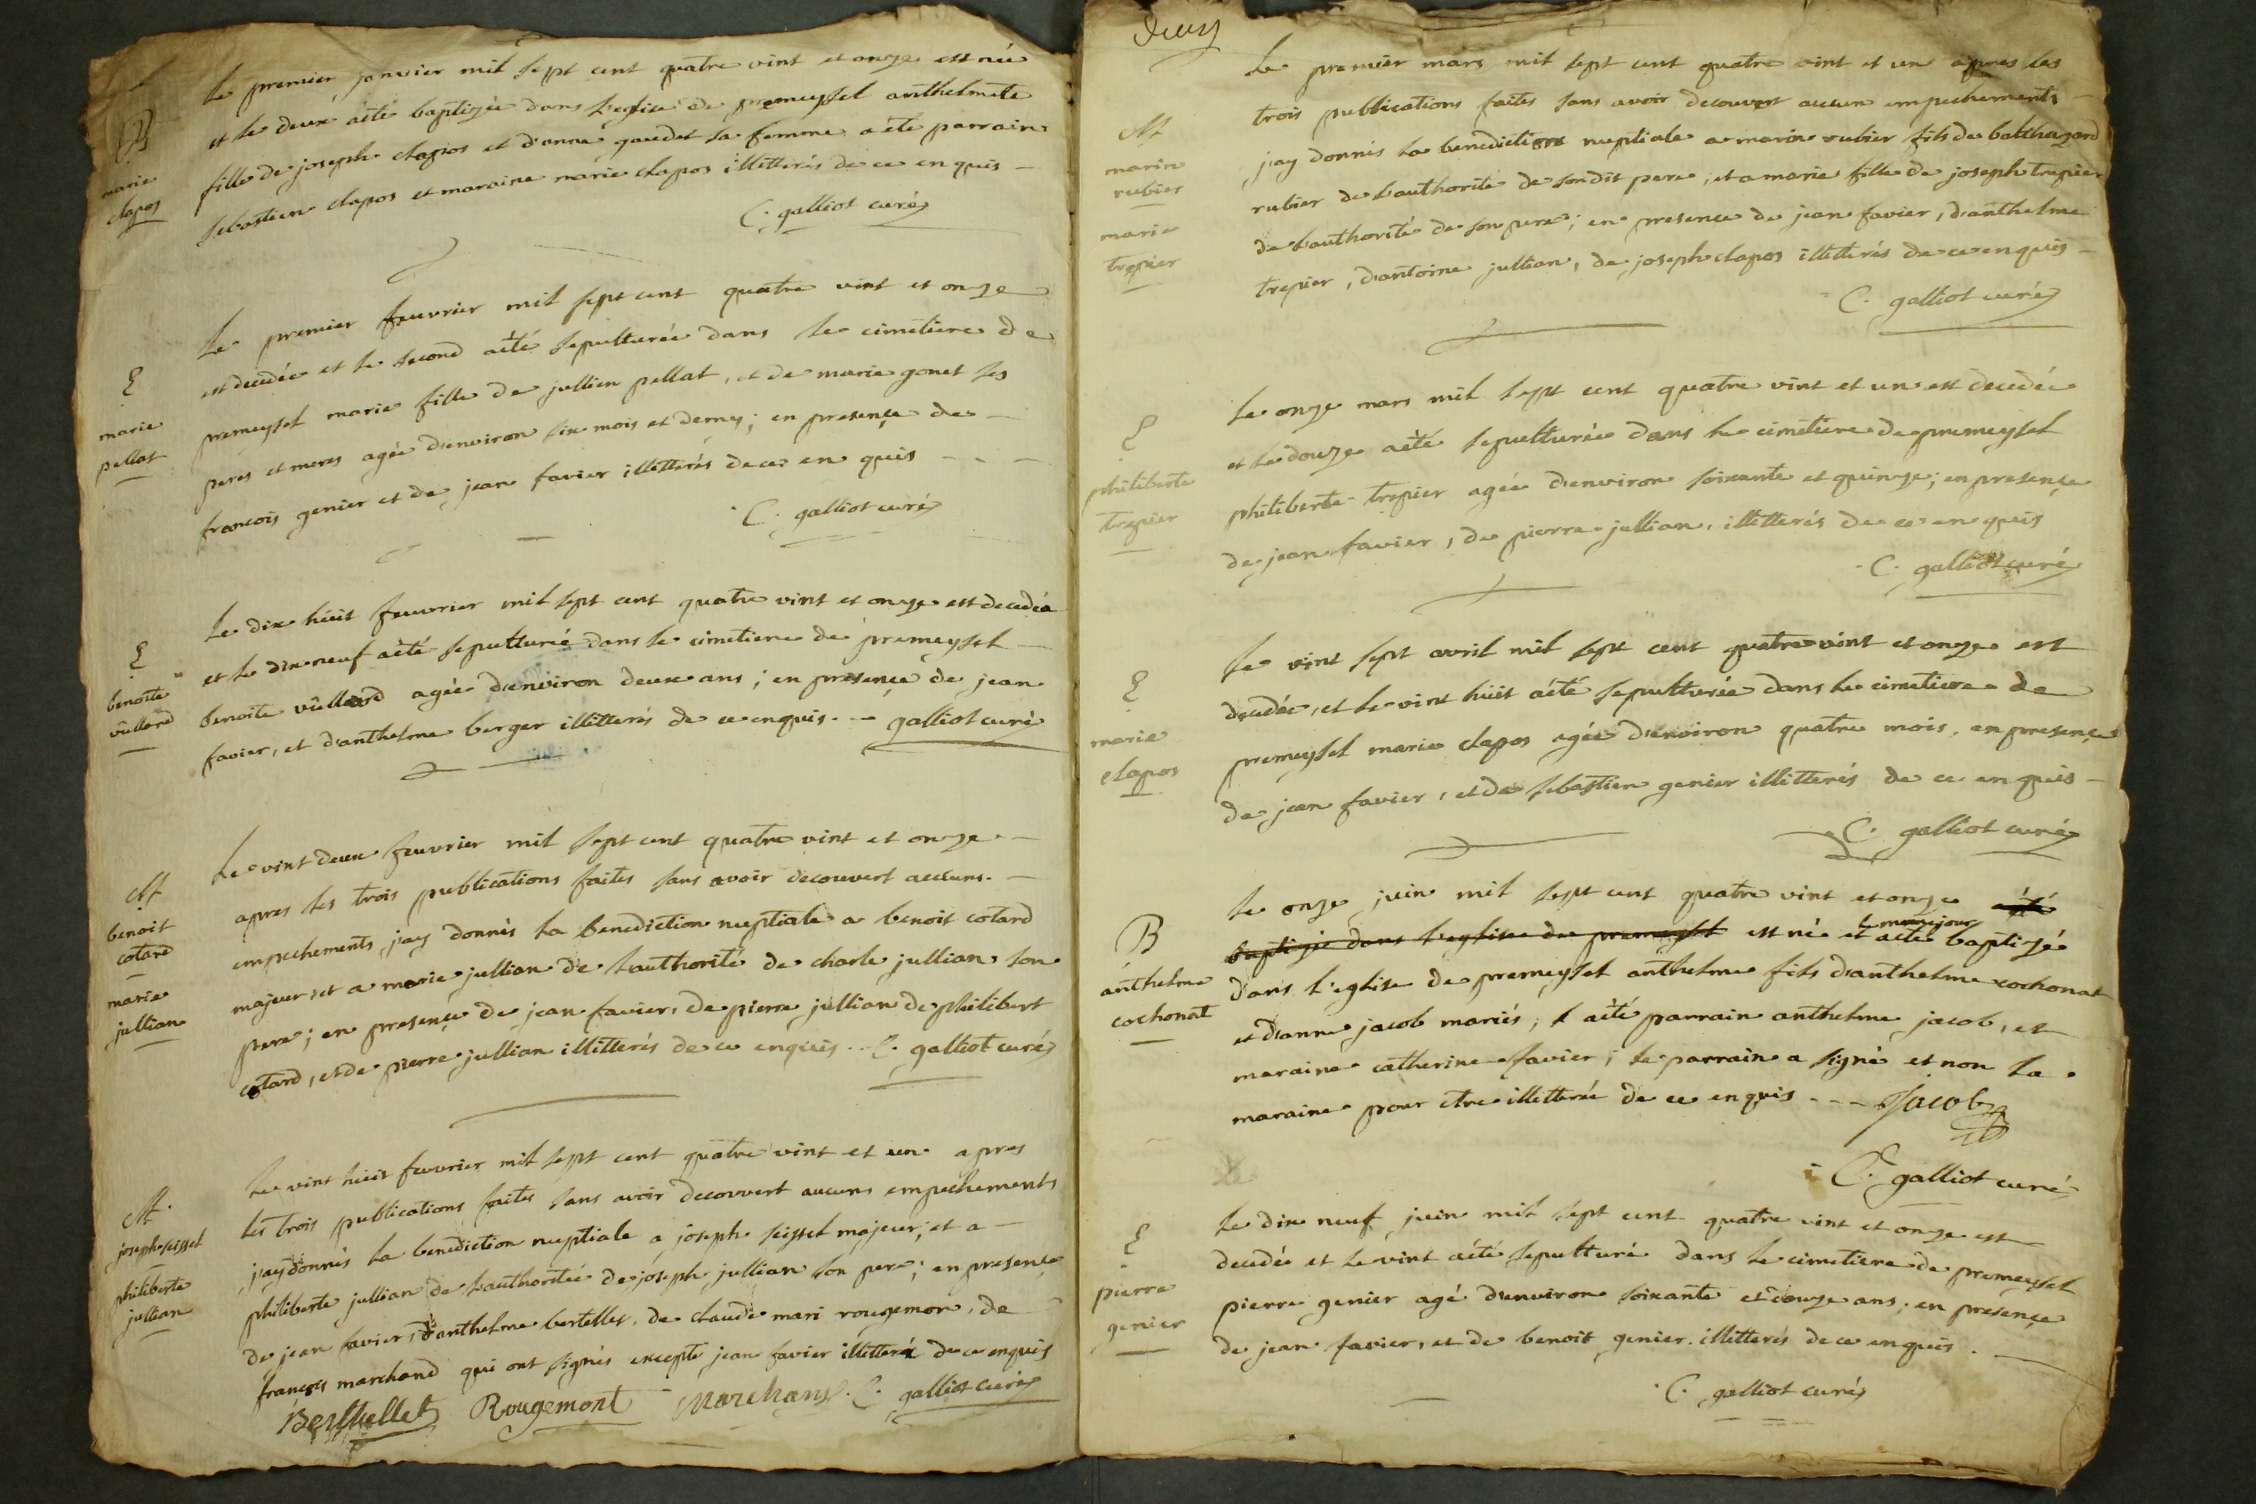 B
marie
clapos
Le premier janvier mil sept cent quatre vint et onze est née
et le deux aété baptizée dans l'eglise de premeysel anthelmete
fille de joseph clapos et d'anne gaudet sa femme a été parrain
sebastien clapos et maraine marie clapos illitterés de ce enquis
C. galliot curé
E
marie
pellat
Le premier feuvrier mil sept cent quatre vint et onze
est decedée et le second aété sepulturée dans le cimetiere de
premeysel marie fille de jullien pellat, et de marie gonet ses
peres et meres agée d'environ six mois et demy; en presençe de
francois genier et de jean favier illitterés de ce enquis
C. galliot curé
E
benoite
vûllerd
Le dix hüit feuvrier mil sept cent quatre vint et onze est decedée
et le dix neuf aété sepulturée dans le cimetiere de premeysel
benoite vûllerd agée d'environ deux ans; en presençe de jean
favier, et d'anthelme berger illitterés de ce enquis. galliot curé
M
benoit
cotard
marie
jullian
Le vint deux feuvrier mil sept cent quatre vint et onze
apres les trois publications faites sans avoir decouvert aucuns
empechements j'ay donnés la benediction nuptiale a benoit cotard
majeur, et a marie jullian de l'authorité de charle jullian son
pere; en presençe de jean favier, de pierre jullian de philibert
cotard, et de pierre jullian illitterés de ce enquis.. C. galliot curé
M.
joseph seissel
philiberte
jullian
Le vint hüit feuvrier mil sept cent quatre vint et un apres
les trois publications faites sans avoir decouvert aucuns empechements
j'ay donnés la benediction nuptiale a joseph seissel majeur; et a
philiberte jullian de l'authoritée de joseph jullian son pere; en presençe
de jean favier, d'anthelme bertellet, de claude mari rougemon, de
françois marchand qui ont signés excepté jean favier illitteré de ce enquis
Berthellet Rougemont Marchand. C. galliot curé
deux
M
marin
rubier
marie
trepier
Le premier mars mil sept cent quatre vint et un apres les
trois publications faites sans avoir decouvert aucun empechements
j'ay donnés la benediction nuptiale a marin rubier fils de balthazard
rubier de l'authorité de sondit pere; et a marie fille de joseph trepier
de l'authorité de son pere; en presence de jean favier, d'anthelme
trepier, d'antoine jullian, de joseph clapos illitterés de ce enquis
C. galliot curé
E
philiberte
trepier
Le onze mars mil sept cent quatre vint et un est decedée
et le douze aété sepulturée dans le cimetiere de premeysel
philiberte trepier agée d'environ soixante et quinze; en presençe
de jean favier, de pierre jullian, illitterés de ce enquis
C. galliot curé
E
marie
clapos
Le vint sept avril mil sept cent quatre vint et onze est
decedée, et le vint hüit aété sepulturée dans le cimetiere de
premeysel marie clapos agée d'environ quatre mois, en presençe
de jean favier, et de sebastien genier illitterés de ce enquis
C. galliot curé
B
anthelme
cochonat
Le onze juin mil sept cent quatre vint et onze aété
baptizé dans l'eglise de premeysel est né et le meme jour aété baptizé
dans l'eglise de premeysel anthelme fils d'anthelme cochonat
et d'anne jacob mariés; aété parrain anthelme jacob, et
maraine catherine favier; le parrain a signé et non la
maraine pour etre illitterée de ce enquis Jacob
C. galliot curé
E
pierre
genier
Le dix neuf juin mil sept cent quatre vint et onze est
decedé et le vint aété sepulturé dans le cimetiere de premeysel
pierre genier agé d'environ soixante et douze ans; en presençe
de jean favier, et de benoit genier. illitterés de ce enquis.
C. galliot curé